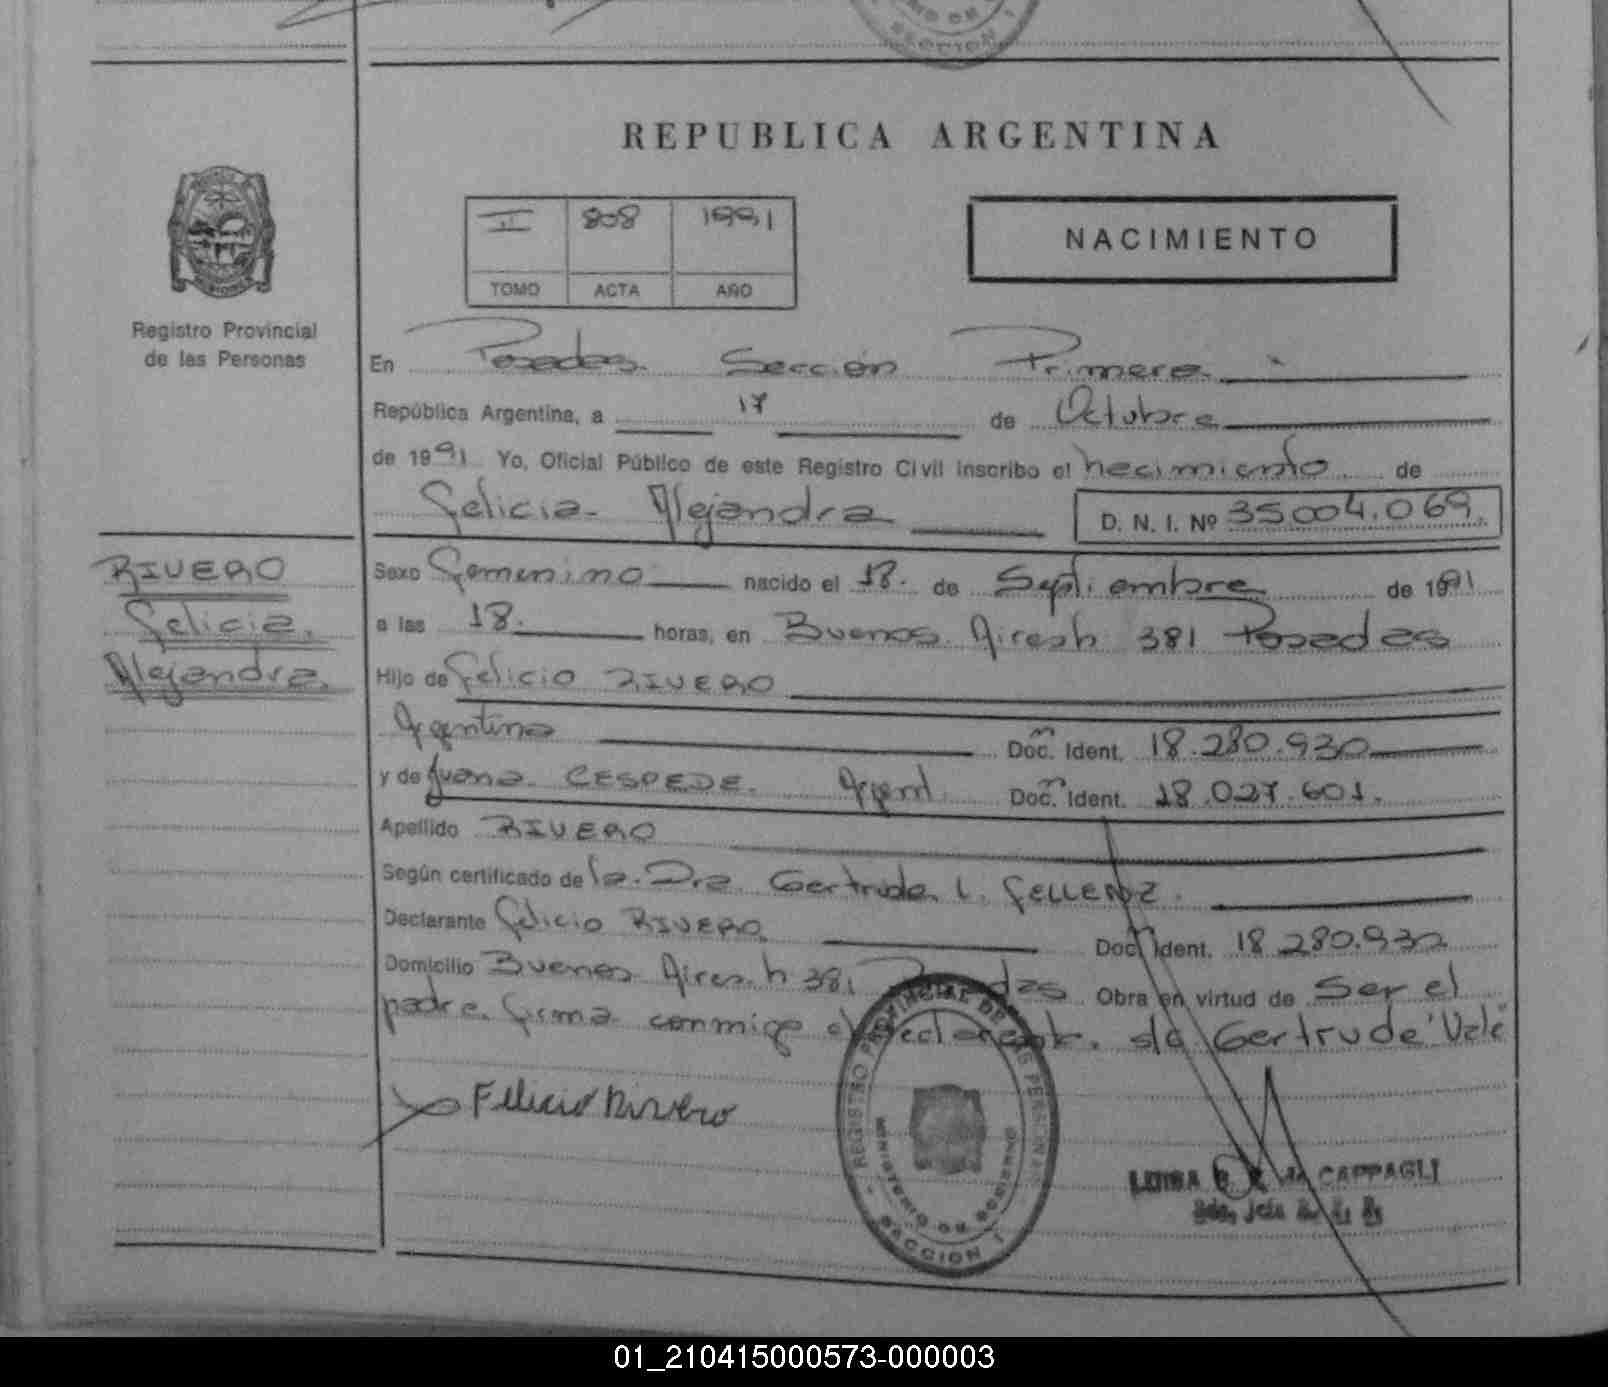 SECCION 1
REPUBLICA ARGENTINA
II 808 1991
TOMO ACTA AÑO
NACIMIENTO
Registro Provincial
de las Personas
En Posadas Sección Primera
República Argentina, a 17 de Octubre
de 1991 Yo, Oficial Público de este Registro Civil inscribo el nacimiento de
Felicia Alejandra D. N. I. Nº 35004.069.
RIVERO
Felicia
Alejandra.
Sexo Femenino nacido el 18. de Septiembre de 1991
a las 18. horas, en Buenos Aires h 381 Posadas
Hijo de Felicio RIVERO
Argentino Doc. Ident. 18.280.930
y de Juana CESPEDE. Argent. Doc. Ident. 18.027.601.
Apellido RIVERO
Según certificado de la Dra Gertrude L.
Declarante Felicio RIVERO Doc. Ident. 18.280.932
Domicilio Buenos Aires h 381 Posadas Obra en virtud de Ser el
padre. Firma conmigo el declarante. s/a Gertrude "Vale"
Felicio Rivero
REGISTRO PROVINCIAL DE LAS PERSONAS
MINISTERIO DE GOBIERNO
SECCION 1
LUISA de CAPPAGLI
01_210415000573-000003